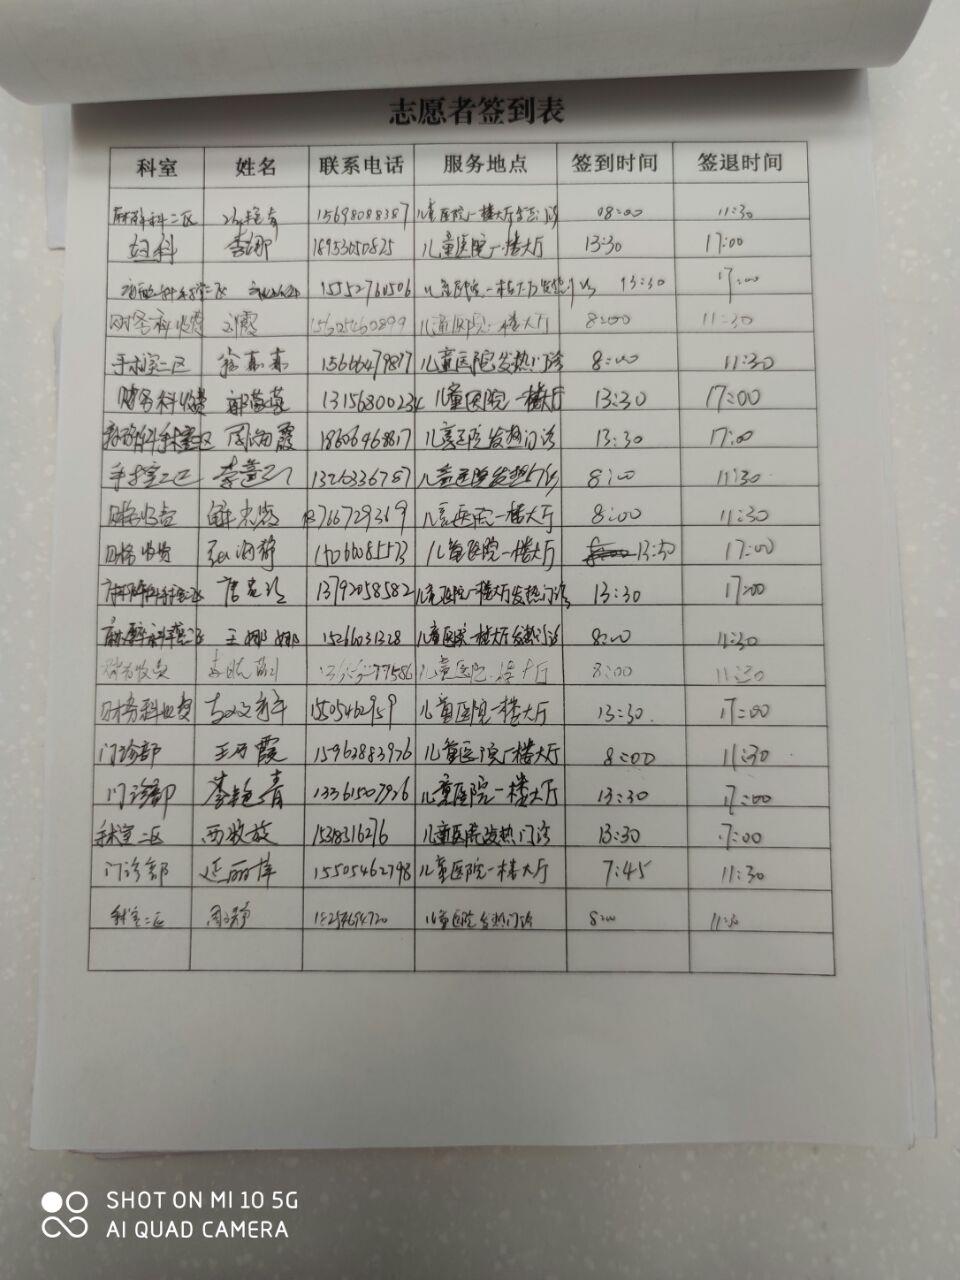 志愿者签到表
科室 姓名 联系电话 服务地点 签到时间 签退时间
麻醉科二区 15698088387 儿童医院一楼大厅 08:00 11:30
妇科 李娜 18953050825 儿童医院一楼大厅 13:30 17:00
15552760506 儿童医院一楼大厅发热门诊 13:30 17:00
财务科收费 刘霞 15605460899 儿童医院一楼大厅 8:00 11:30
手术室二区 15666479817 儿童医院发热门诊 8:00 11:30
财务科收费 儿童医院一楼大厅 13:30 17:00
周海霞 18606468817 儿童医院发热门诊 13:30 17:00
手术室二区 1326336787 儿童医院发热门诊 8:00 11:30
财务收费 766729369 儿童医院一楼大厅 8:00 11:30
财务收费 张海静 15066085573 儿童医院一楼大厅 13:30 17:00
13792058582 儿童医院一楼大厅发热门诊 13:30 17:00
王娜娜 1526031328 儿童医院一楼大厅发热门诊 8:00 11:30
财务收费 儿童医院一楼大厅 8:00 11:30
财务科收费 1505462959 儿童医院一楼大厅 13:30 17:00
门诊部 15962882926 儿童医院一楼大厅 8:00 11:30
门诊部 李艳青 13361507926 儿童医院一楼大厅 13:30 17:00
手术室二区 1538316276 儿童医院发热门诊 13:30 17:00
门诊部 延丽萍 15505462798 儿童医院一楼大厅 7:45 11:30
手术室二区 18254694720 儿童医院发热门诊 8:00 11:30
SHOT ON MI 10 5G
AI QUAD CAMERA